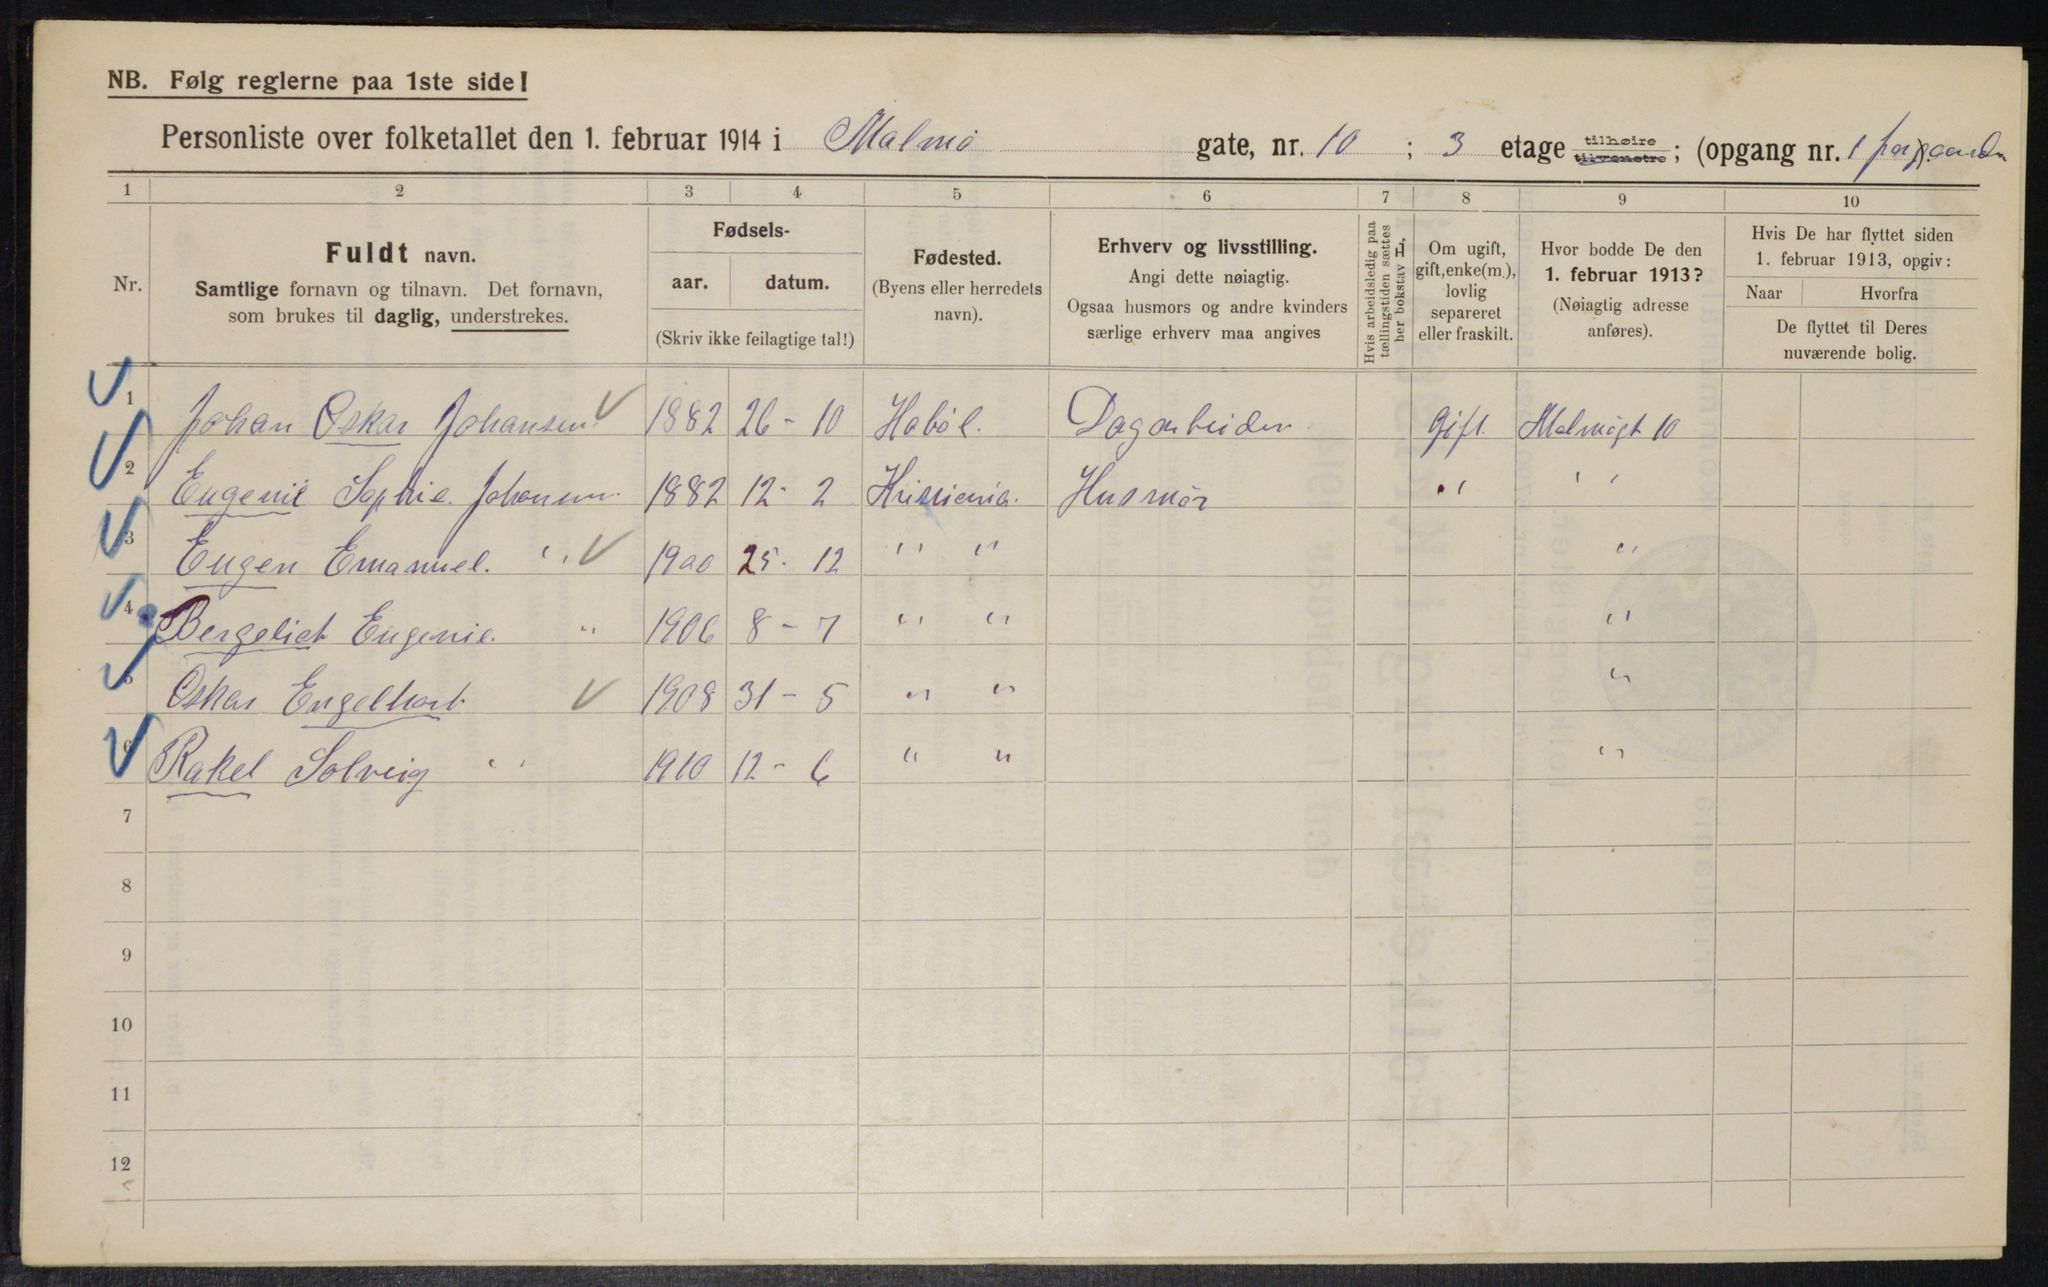 NB. Følg reglerne paa 1ste side!
Personliste over folketallet den 1. februar 1914 i Malmø gate, nr. 10 ; 3 etage tilhøire tilvenstre ; (opgang nr. 1
1 2 3 4 5 6 7 8 9 10
Nr.
Fuldt navn.
Samtlige fornavn og tilnavn. Det fornavn,
som brukes til daglig, understrekes.
Fødsels-
aar. datum.
(Skriv ikke feilagtige tal!)
Fødested.
(Byens eller herredets
navn).
Erhverv og livsstilling.
Angi dette nøiagtig.
Ogsaa husmors og andre kvinders
særlige erhverv maa angives
Hvis arbeidsledig paa
tællingstiden sættes
her bokstav L.
Om ugift,
gift, enke(m.),
lovlig
separeret
eller fraskilt.
Hvor bodde De den
1. februar 1913?
(Nøiagtig adresse
anføres).
Hvis De har flyttet siden
1. februar 1913, opgiv:
Naar Hvorfra
De flyttet til Deres
nuværende bolig.
1 Johan Oskar Johansen 1882 26 - 10 Habøl. Dagarbeider gift. Malmøgt 10
2 Eugenie Sophie Johansen 1882 12 - 2 Kristiania. Husmor " " "
3 Eugen Emanuel. " 1900 25 - 12 " " "
4 Bergeliot Eugenie. " 1906 8 - 7 " " "
5 Oskar Engelhart 1908 31 - 5 " " "
6 Rakel Solveig " 1910 12 - 6 " " "
7
8
9
10
11
12